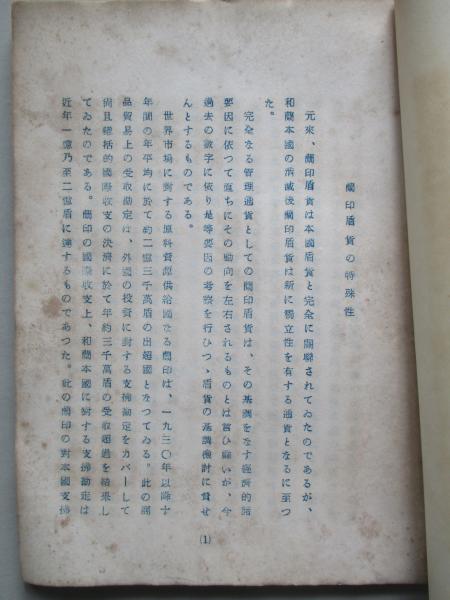 蘭印盾貨の特殊性
元來、蘭印盾貨は本國盾貨と完全に關聯されてゐたのであるが、
和蘭本國の潰滅後蘭印盾貨は新に獨立性を有する通貨となるに至つ
た。
完全なる管理通貨としての蘭印盾貨は、その基調をなす經濟的諸
要因に依つて直ちにその動向を左右されるものとは言ひ難いが、今
過去の數字に依り是等要因の考察を行ひつゝ盾貨の基調檢討に資せ
んとするものである。
世界市場に對する原料資源供給國なる蘭印は、一九三〇年以降十
年間の年平均に於て約二億三千萬盾の出超國となつてゐる。此の商
品貿易上の受取勘定は、外國の投資に對する支拂勘定をカバーして
尚且總括的國際收支の決濟に於て年約三千萬盾の受取超過を結果し
てゐたのである。蘭印の國際收支上、和蘭本國に對する支拂勘定は
近年一億乃至二億盾に達するものであつた。此の蘭印の對本國支拂
(1)